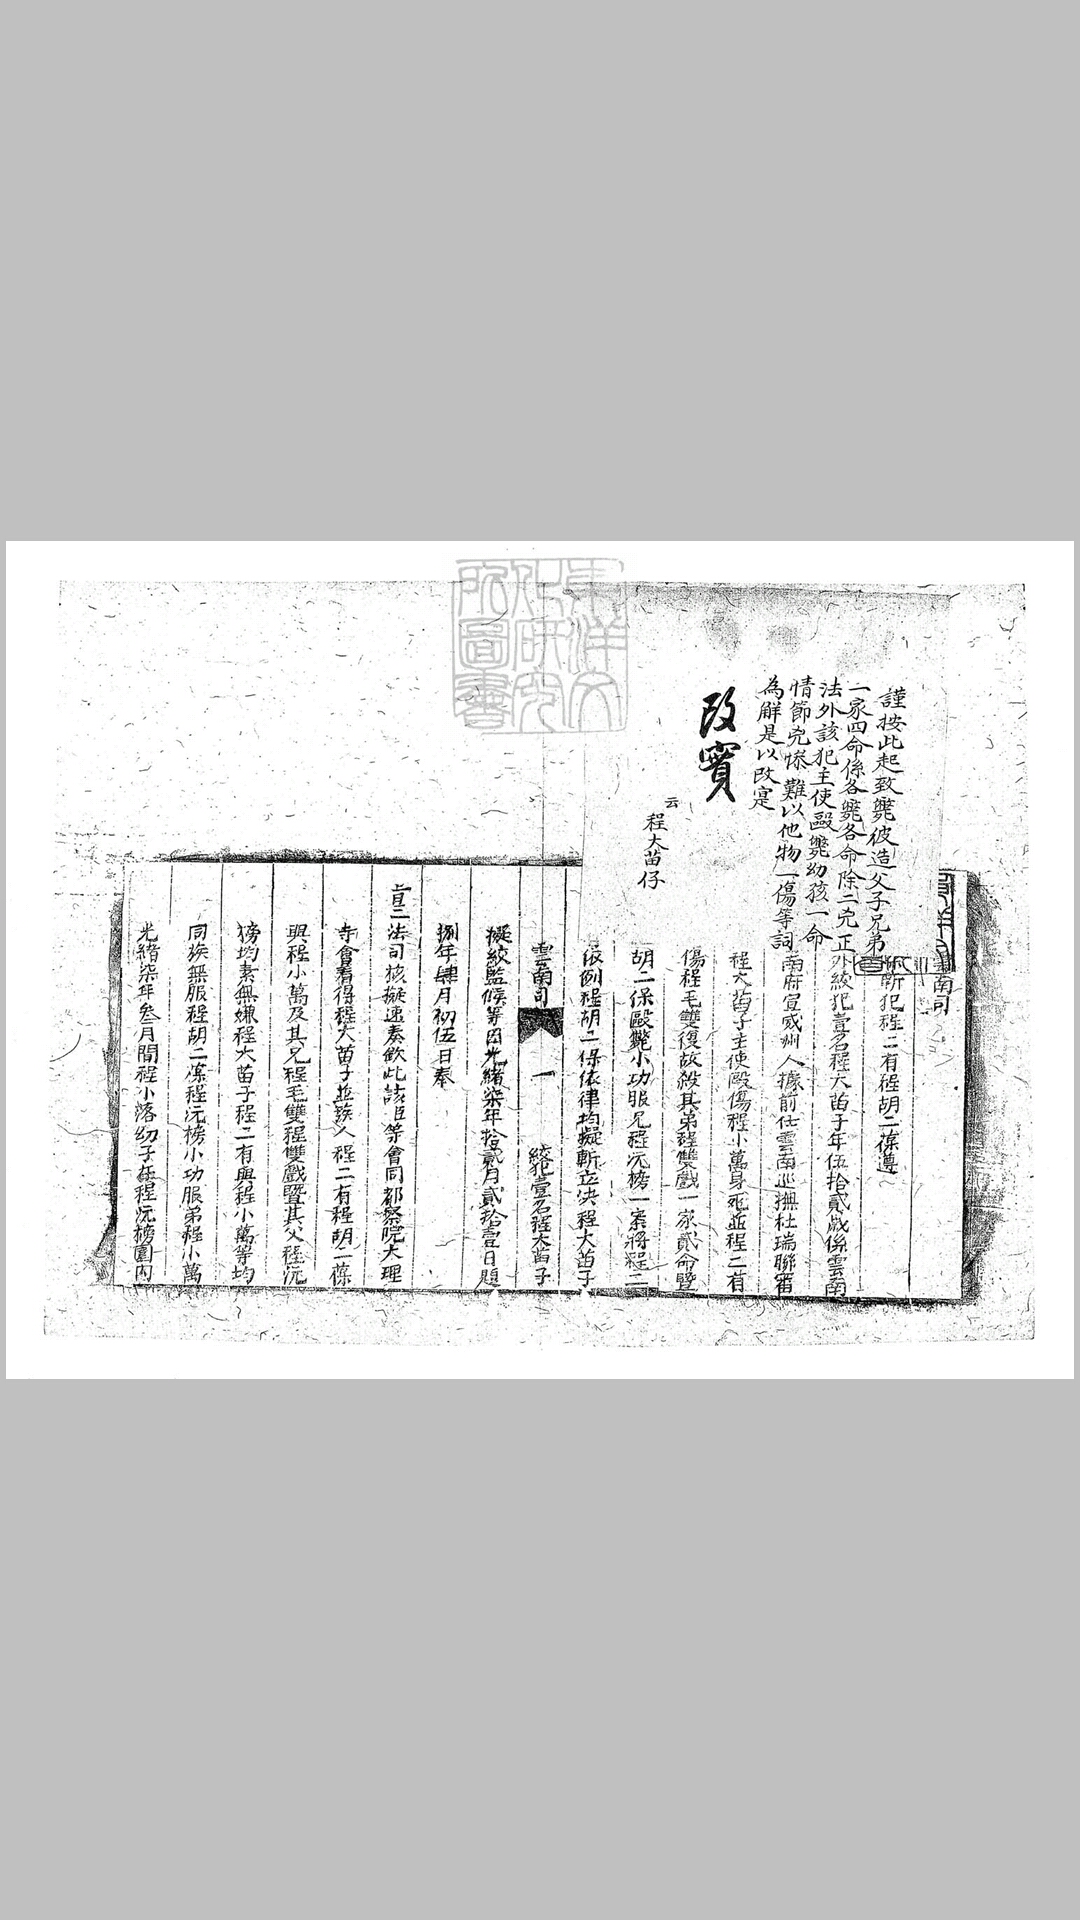 謹按此起致斃彼造父子兄弟
一家四命係各斃各命除二兇正
法外該犯主使毆斃幼孩一命
情節兇慘難以他物一傷等詞
為解是以改寔
改實
云
程大苗仔
雲南司
斬犯程二有程胡二葆遵
外絞犯壹名程大苗子年伍拾貳歲係雲南
南府宣威州人據前任雲南巡撫杜瑞聯審
程大苗子主使毆傷程小萬身死並程二有
傷程毛雙復故殺其弟程雙戲一家貳命暨
胡二保毆斃小功服兄程沅榜一案將程二
依例程胡二保依律均擬斬立決程大苗子
雲南司 一 絞犯壹名程大苗子
擬絞監候等因光緒柒年拾貳月貳拾壹日題
捌年肆月初伍日奉
旨三法司核擬速奏欽此該臣等會同都察院大理
寺會看得程大苗子並族人程二有程胡二葆
興程小萬及其兄程毛雙程雙戲暨其父程沅
榜均素無嫌程大苗子程二有與程小萬等均
同族無服程胡二葆程沅榜小功服弟程小萬
光緒柒年叁月間程小落幼子在程沅榜園內
東洋文化研究所圖書